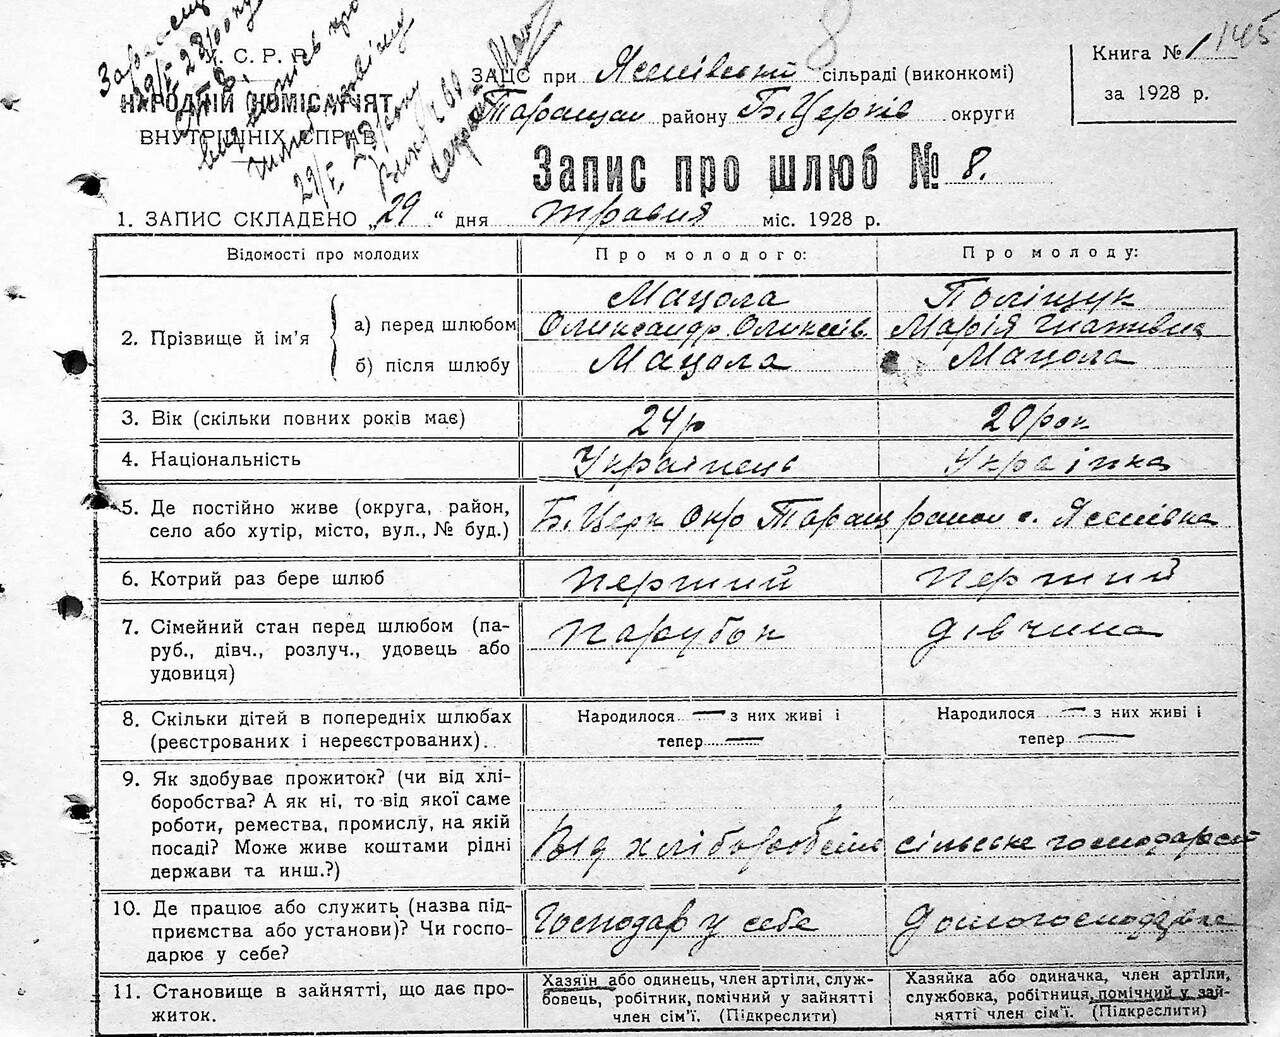 145
8
У. С. Р. Р.
НАРОДНІЙ КОМІСАРІЯТ
ВНУТРІШНІХ СПРАВ
29/V 28 року
ЗАЦС при Ясенівський сільраді (виконкомі)
Таращан району Б. Церків округи
Книга № 1
за 1928 р.
Запис про шлюб № 8.
1. ЗАПИС СКЛАДЕНО „29“ дня травня міс. 1928 р.
Відомості про молодих Про молодого: Про молоду:
2. Прізвище й ім’я
а) перед шлюбом Мацола Поліщук
Олександр Олексів Марія Гнатівна
б) після шлюбу Мацола Мацола
3. Вік (скільки повних років має) 24 р 20 рок
4. Національність Українець Українка
5. Де постійно живе (округа, район,
село або хутір, місто, вул., № буд.) Б. Церк Окр Таращ район с. Ясенівка
6. Котрий раз бере шлюб перший перший
7. Сімейний стан перед шлюбом (па-
руб., дівч., розлуч., удовець або
удовиця) парубок дівчина
8. Скільки дітей в попередніх шлюбах
(реєстрованих і нереєстрованих). Народилося — з них живі і
тепер — Народилося — з них живі і
тепер —
9. Як здобуває прожиток? (чи від хлі-
боробства? А як ні, то від якої саме
роботи, ремества, промислу, на якій
посаді? Може живе коштами рідні
держави та инш.?) Від хліборобства сільське господарст
10. Де працює або служить (назва під-
приємства або установи)? Чи госпо-
дарює у себе? Господар у себе
11. Становище в зайнятті, що дає про-
житок.
Хазяїн або одинець, член артіли, служ-
бовець, робітник, помічний у зайнятті
член сім’ї. (Підкреслити)
Хазяйка або одиначка, член артіли,
службовка, робітниця, помічний у зай-
нятті член сім’ї. (Підкреслити)